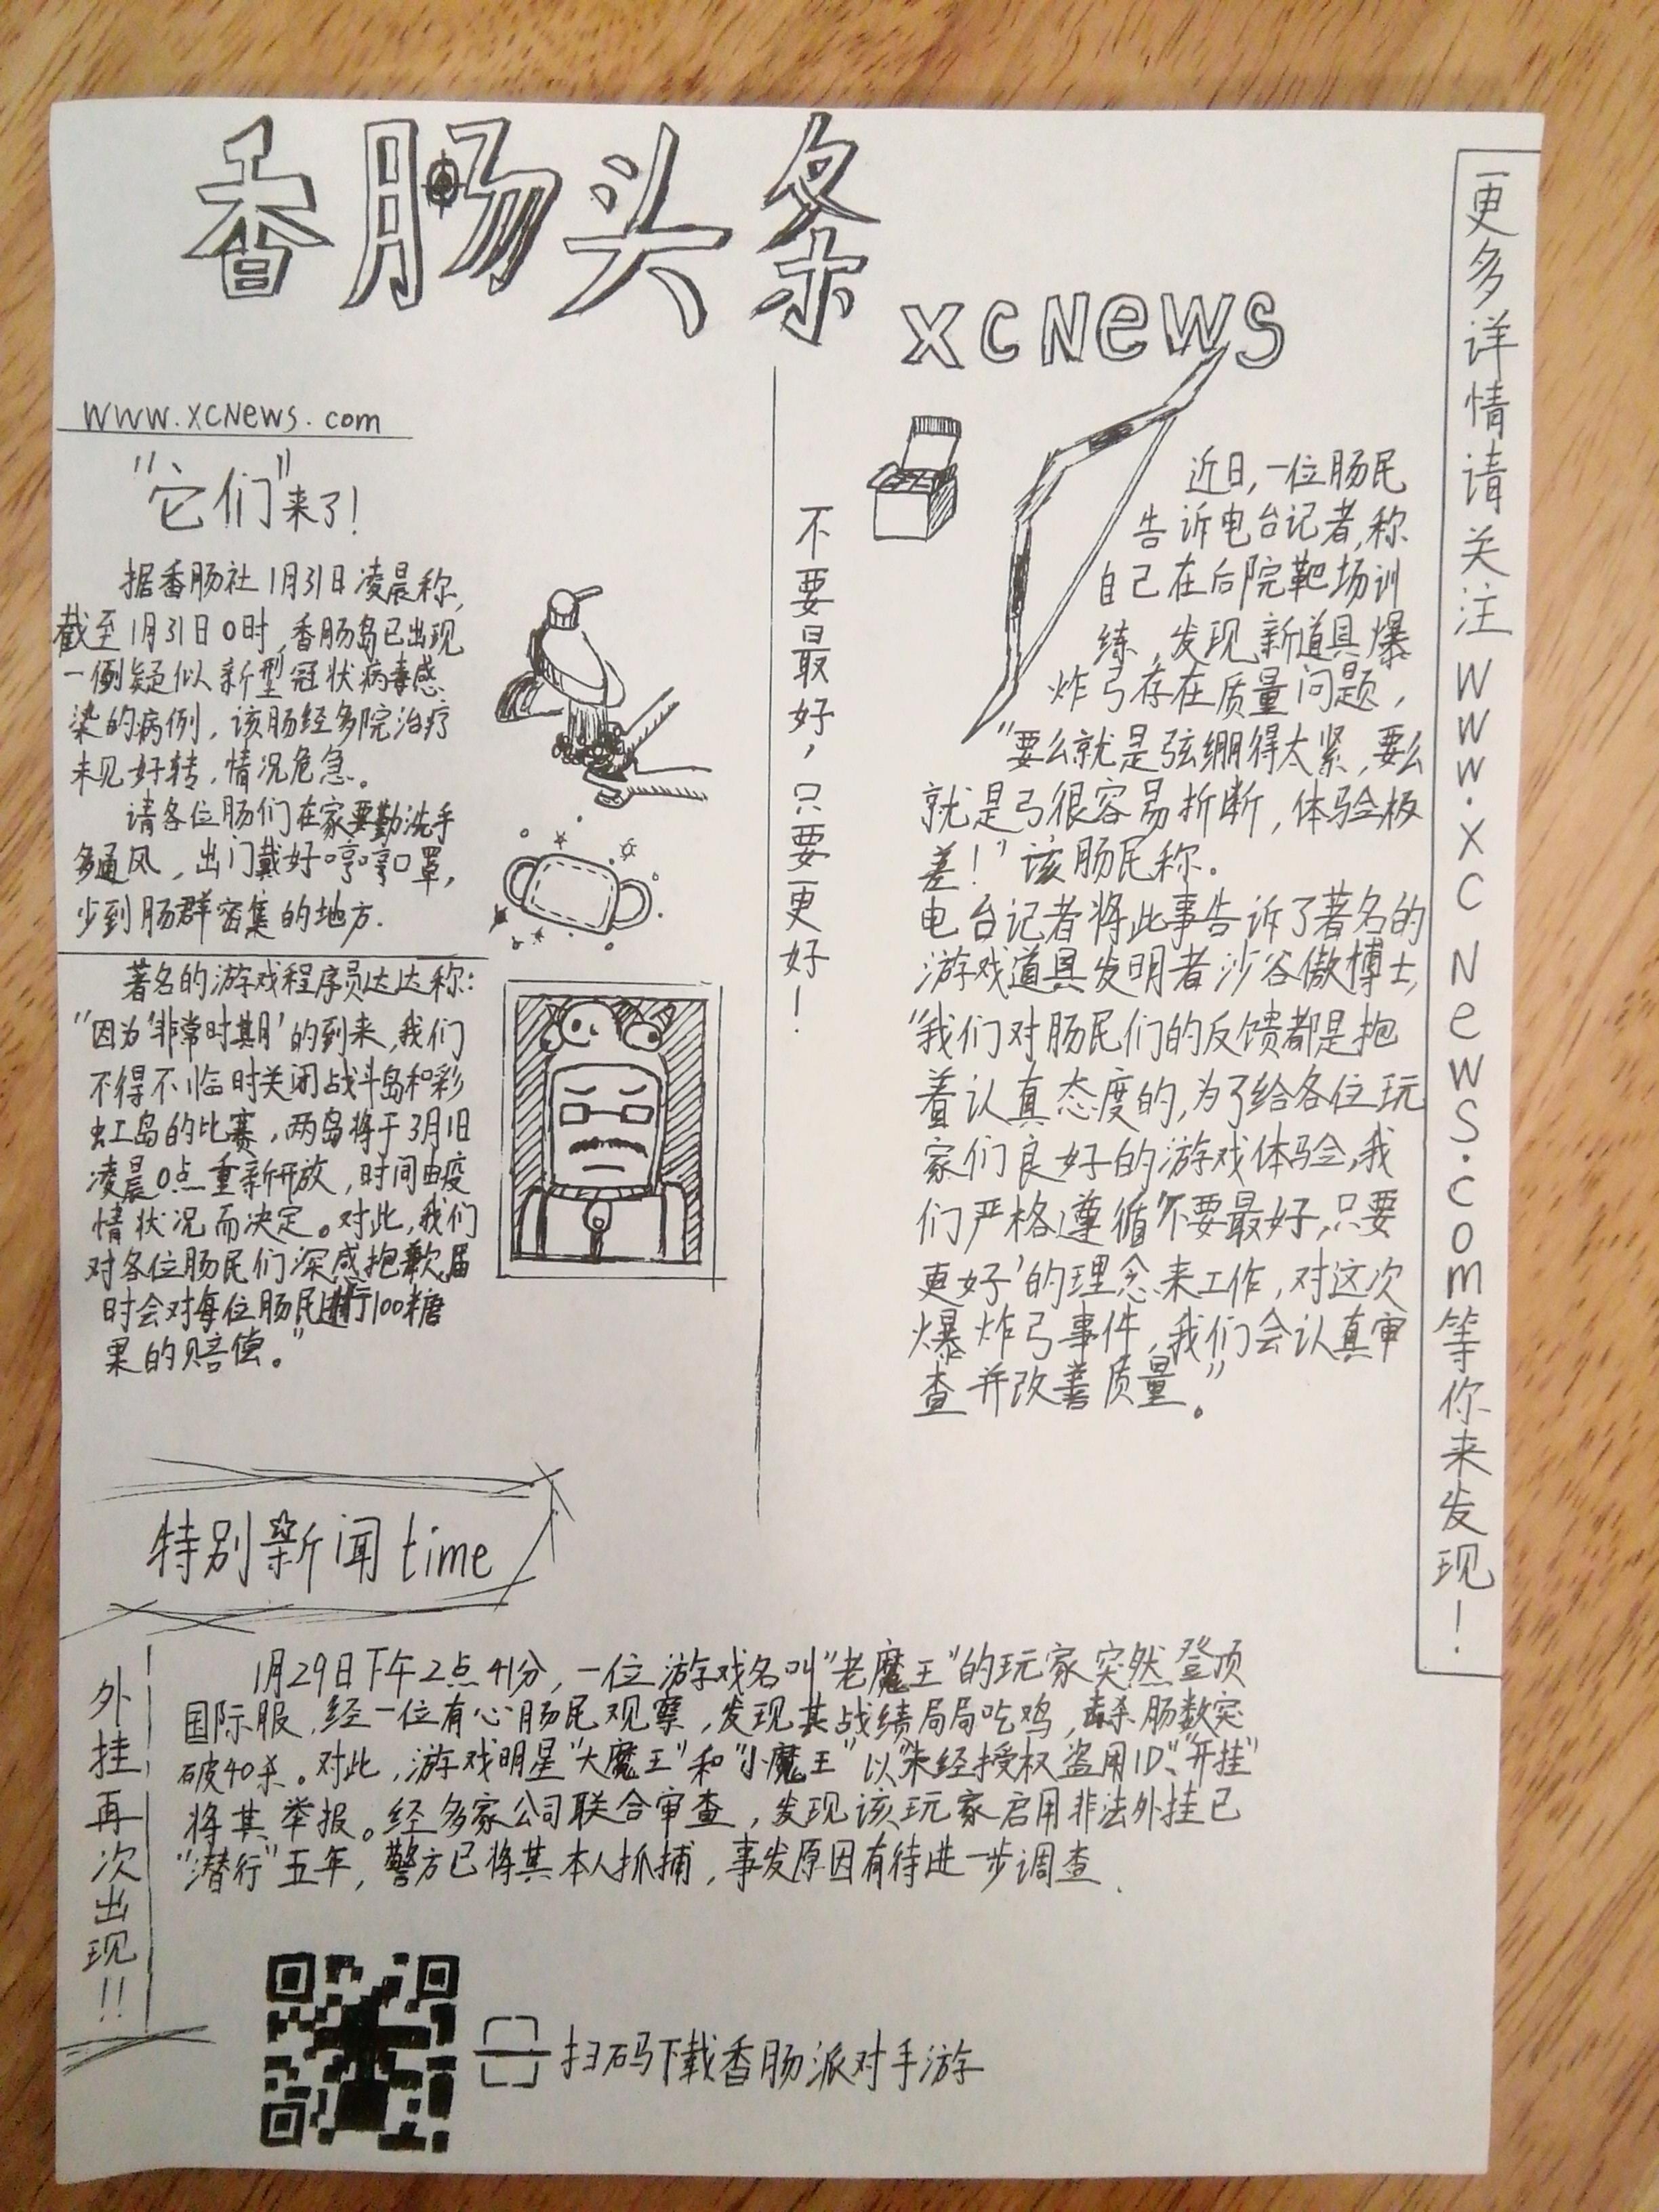 香肠头条
xcNews
www.xcNews.com
"它们"来了!
据香肠社1月31日凌晨称,
截至1月31日0时,香肠岛已出现
一例疑似新型冠状病毒感
染的病例,该肠经多院治疗
未见好转,情况危急。
请各位肠们在家要勤洗手
多通风,出门戴好哼哼口罩,
少到肠群密集的地方.
著名的游戏程序员达达称:
"因为'非常时期'的到来,我们
不得不临时关闭战斗岛和彩
虹岛的比赛,两岛将于3月1日
凌晨0点重新开放,时间由疫
情状况而决定。对此,我们
对各位肠民们深感抱歉,届
时会对每位肠民进行100糖
果的赔偿。"
不要最好,只要更好!
近日,一位肠民
告诉电台记者,称
自己在后院靶场训
练,发现新道具爆
炸弓存在质量问题,
"要么就是弦绷得太紧,要么
就是弓很容易折断,体验极
差!"该肠民称.
电台记者将此事告诉了著名的
游戏道具发明者沙谷傲博士,
"我们对肠民们的反馈都是抱
着认真态度的,为了给各位玩
家们良好的游戏体验,我
们严格遵循'不要最好,只要
更好'的理念来工作,对这次
爆炸弓事件,我们会认真审
查并改善质量。"
更多详情请关注www.xcNews.com等你来发现!
特别新闻time
外挂再次出现!!
1月29日下午2点41分,一位游戏名叫"老魔王"的玩家突然登顶
国际服,经一位有心肠民观察,发现其战绩局局吃鸡,击杀肠数突
破40杀。对此,游戏明星"大魔王"和"小魔王"以"未经授权盗用ID"、"开挂"
将其举报。经多家公司联合审查,发现该玩家启用非法外挂已
"潜行"五年,警方已将其本人抓捕,事发原因有待进一步调查.
扫码下载香肠派对手游